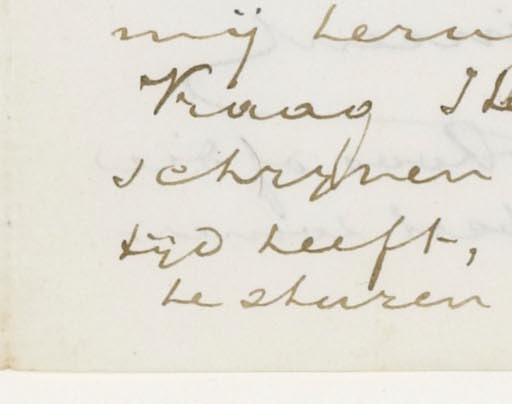 mij
Vraag
schrijven
tijd heeft,
te sturen